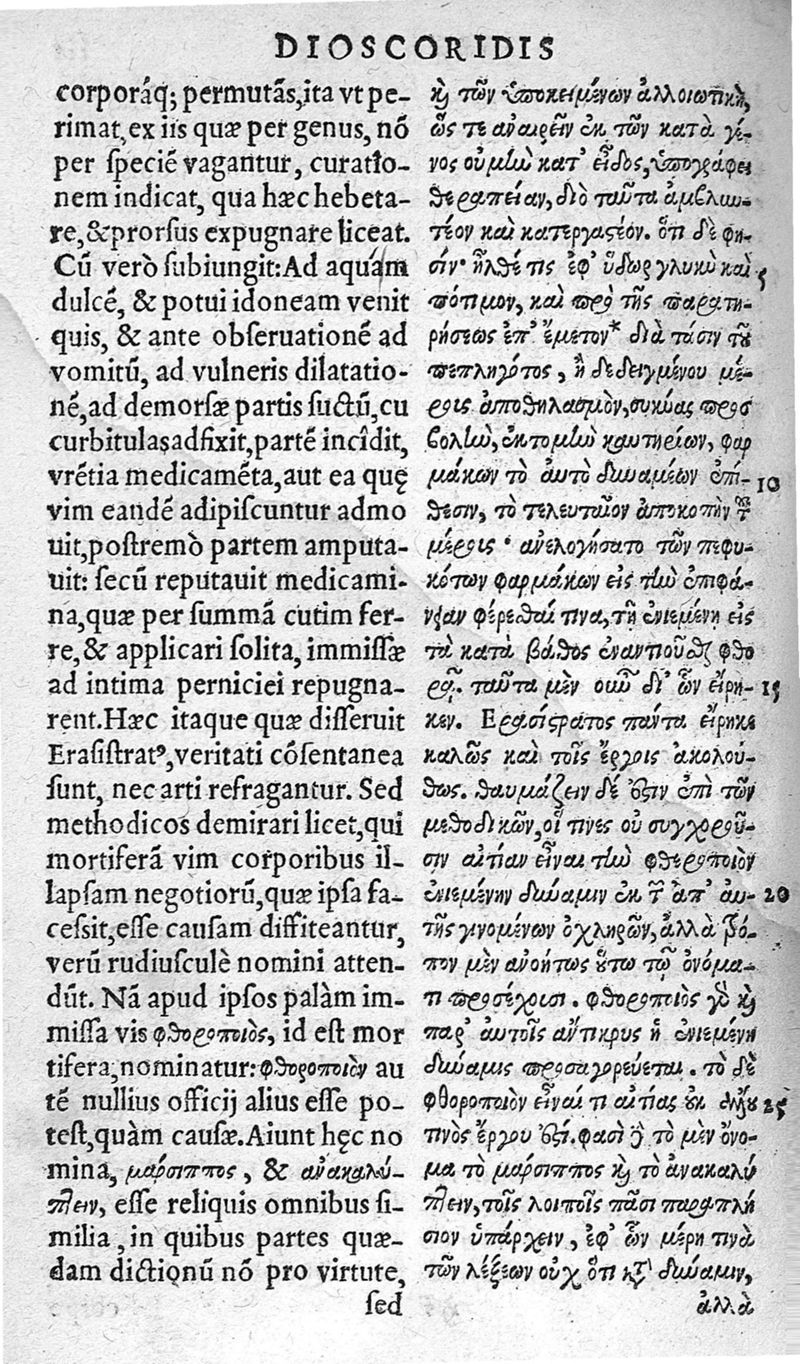 DIOSCORIDIS
corporáq; permutãs, ita vt pe-
rimat, ex iis quæ per genus, nõ
per speciẽ vagantur, curatio-
nem indicat, qua hæc hebeta-
re, & prorsus expugnare liceat.
Cũ verò subiungit: Ad aquám
dulcẽ, & potui idoneam venit
quis, & ante obseruationẽ ad
vomitũ, ad vulneris dilatatio-
nẽ, ad demorsæ partis suctũ, cu
curbitulas adfixit, partẽ incîdit,
vrẽtia medicamẽta, aut ea quę
vim eandẽ adipiscuntur admo
uit, postremò partem amputa-
uit: secũ reputauit medicami-
na, quæ per summã cutim fer-
re, & applicari solita, immissæ
ad intima perniciei repugna-
rent. Hæc itaque quæ disseruit
Erasistratꝰ, veritati cõsentanea
sunt, nec arti refragantur. Sed
methodicos demirari licet, qui
mortiferã vim corporibus il-
lapsam negotiorũ, quæ ipsa fa-
cessit, esse causam diffiteantur,
verũ rudiusculè nomini atten-
dũt. Nã apud ipsos palàm im-
missa vis φθοροποιὸς, id est mor
tifera, nominatur: φθοροποιὸν au
tẽ nullius officij alius esse po-
test, quàm causæ. Aiunt hęc no
mina, μάρσιππος, & ἀνακαλύ-
πτειν, esse reliquis omnibus si-
milia, in quibus partes quæ-
dam dictionũ nõ pro virtute,
sed
καὶ τῶν ὑποκειμένων ἀλλοιωτικὴ,
ὥς τε ἀναιρεῖν ἐκ τῶν κατὰ γέ-
νος οὐ μὴν κατ' εἶδος, ὑπογράφει
θεραπείαν, διὸ ταῦτα ἀμβλυν-
τέον καὶ κατεργαστέον. ὅτι δὲ φη-
σίν· ἦλθέ τις ἐφ' ὕδωρ γλυκὺ καὶ 5
πότιμον, καὶ πρὸ τῆς παρατη-
ρήσεως ἐπ' ἔμετον* διὰ τάσιν τοῦ
πεπληγότος, ἢ δεδειγμένου μέ-
ρους ἀποθηλασμὸν, σικύας προσ
βολὴν, ἐκτομὴν καυτηρίων, φαρ
μάκων τὸ αὐτὸ δυναμένων ἐπί- 10
θεσιν, τὸ τελευταῖον ἀποκοπὴν τοῦ
μέρους· ἀνελογήσατο τῶν πεφυ-
κότων φαρμάκων εἰς τὴν ἐπιφά-
νειαν φέρεσθαί τινα, τῇ ἐνιεμένῃ εἰς
τὰ κατὰ βάθος ἐναντιοῦσθαι φθο
ρᾷ. ταῦτα μὲν οὖν δι' ὧν εἴρη- 15
κεν. Ερασίστρατος πάντα εἴρηκε
καλῶς καὶ τοῖς ἔργοις ἀκολού-
θως. θαυμάζειν δέ ἐστιν ἐπὶ τῶν
μεθοδικῶν, οἵ τινες οὐ συγχοροῦ-
σιν αἰτίαν εἶναι τὴν φθεροποιὸν
ἐνιεμένην δύναμιν ἐκ τῶν ἀπ' αὐ- 20
τῆς γινομένων ὀχληρῶν, ἀλλὰ τρό-
πον μὲν ἀνοήτως οὕτω τῷ ὀνόμα-
τι προσέχουσι. φθοροποιὸς γὸ καὶ
παρ' αὐτοῖς ἄντικρυς ἡ ἐνιεμένη
δύναμις προσαγορεύεται. τὸ δὲ
φθοροποιὸν εἶναί τι αἰτίας οὐκ ἄλλου 25
τινὸς ἔργου ἐστί. φασὶ γὸ τὸ μὲν ὄνο-
μα τὸ μάρσιππος καὶ τὸ ἀνακαλύ
πτειν, τοῖς λοιποῖς πᾶσι παραπλή
σιον ὑπάρχειν, ἐφ' ὧν μέρη τινὰ
τῶν λέξεων οὐχ ὅτι κατὰ δύναμιν,
ἀλλὰ